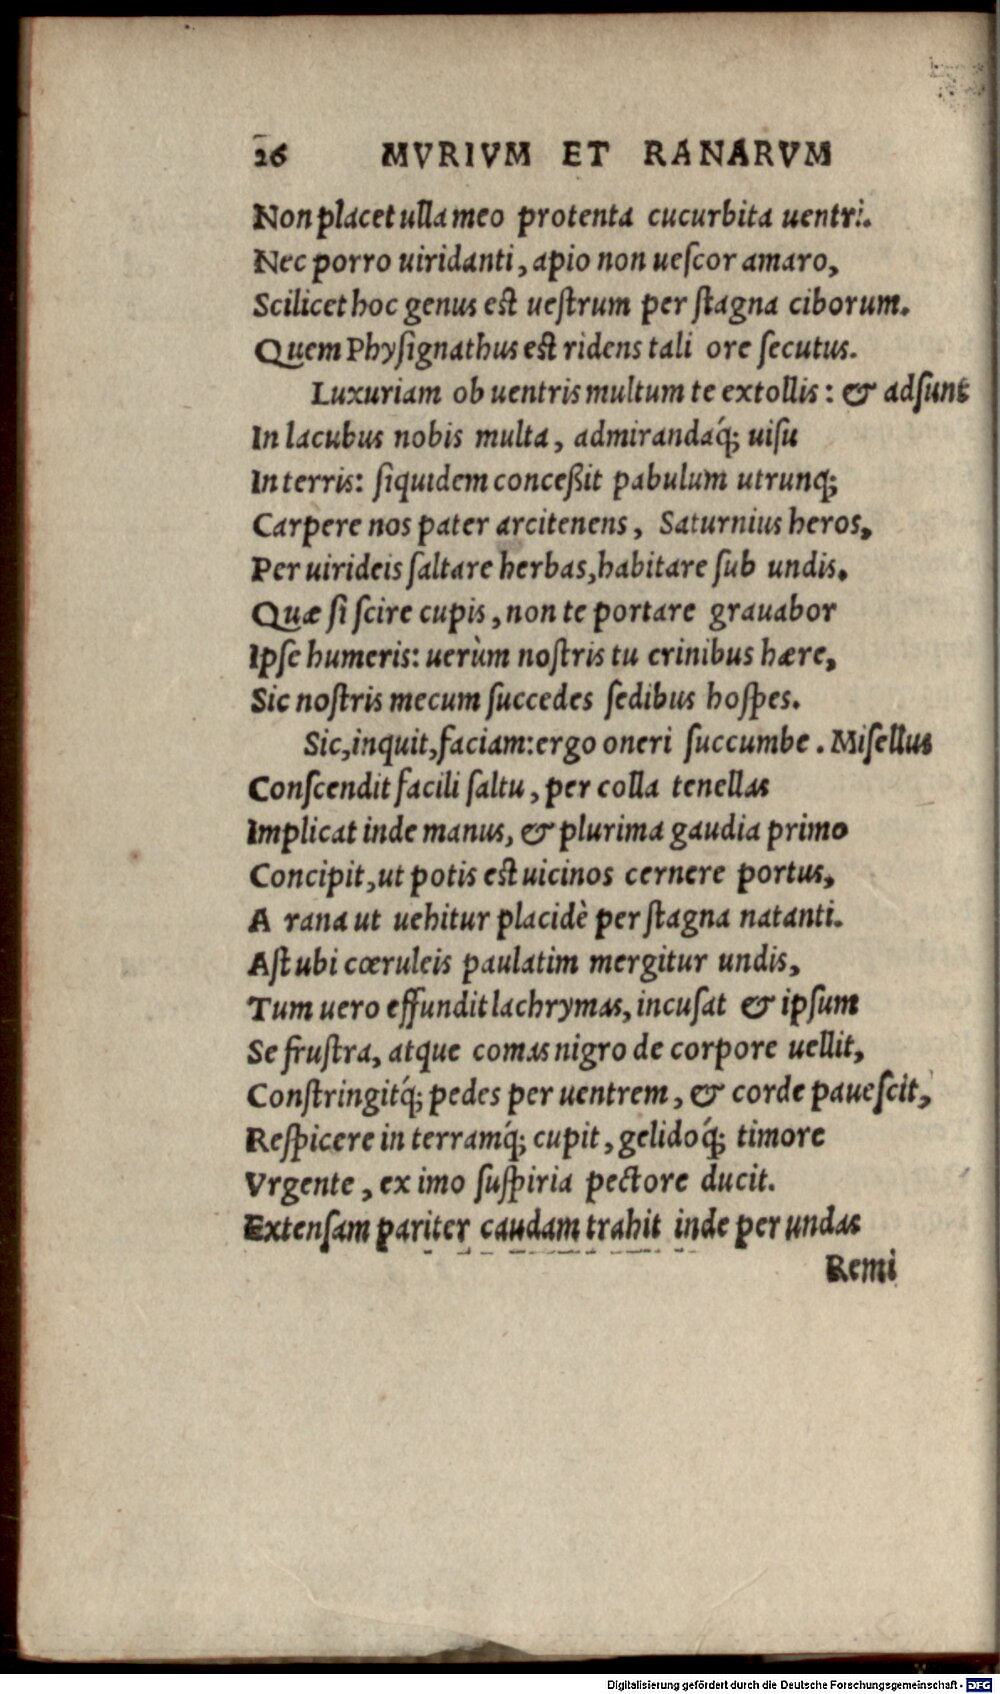 26 MVRIVM ET RANARVM
Non placet ulla meo protenta cucurbita uentri.
Nec porro uiridanti, apio non ueſcor amaro,
Scilicet hoc genus eſt ueſtrum per ſtagna ciborum.
Quem Phyſignathus eſt ridens tali ore ſecutus.
Luxuriam ob uentris multum te extollis: & adſunt
In lacubus nobis multa, admirandaq́; uiſu
In terris: ſiquidem conceßit pabulum utrunq;
Carpere nos pater arcitenens, Saturnius heros,
Per uirideis ſaltare herbas, habitare ſub undis.
Quæ ſi ſcire cupis, non te portare grauabor
Ipſe humeris: uerùm noſtris tu crinibus hære,
Sic noſtris mecum ſuccedes ſedibus hoſpes.
Sic, inquit, faciam: ergo oneri ſuccumbe. Miſellus
Conſcendit facili ſaltu, per colla tenellas
Implicat inde manus, & plurima gaudia primo
Concipit, ut potis eſt uicinos cernere portus,
A rana ut uehitur placidè per ſtagna natanti.
Aſt ubi cœruleis paulatim mergitur undis,
Tum uero effundit lachrymas, incuſat & ipſum
Se fruſtra, atque comas nigro de corpore uellit,
Conſtringitq́; pedes per uentrem, & corde paueſcit,
Reſpicere in terramq́; cupit, gelidoq́; timore
Vrgente, ex imo ſuſpiria pectore ducit.
Extenſam pariter caudam trahit inde per undas
Remi
Digitalisierung gefördert durch die Deutsche Forschungsgemeinschaft - DFG